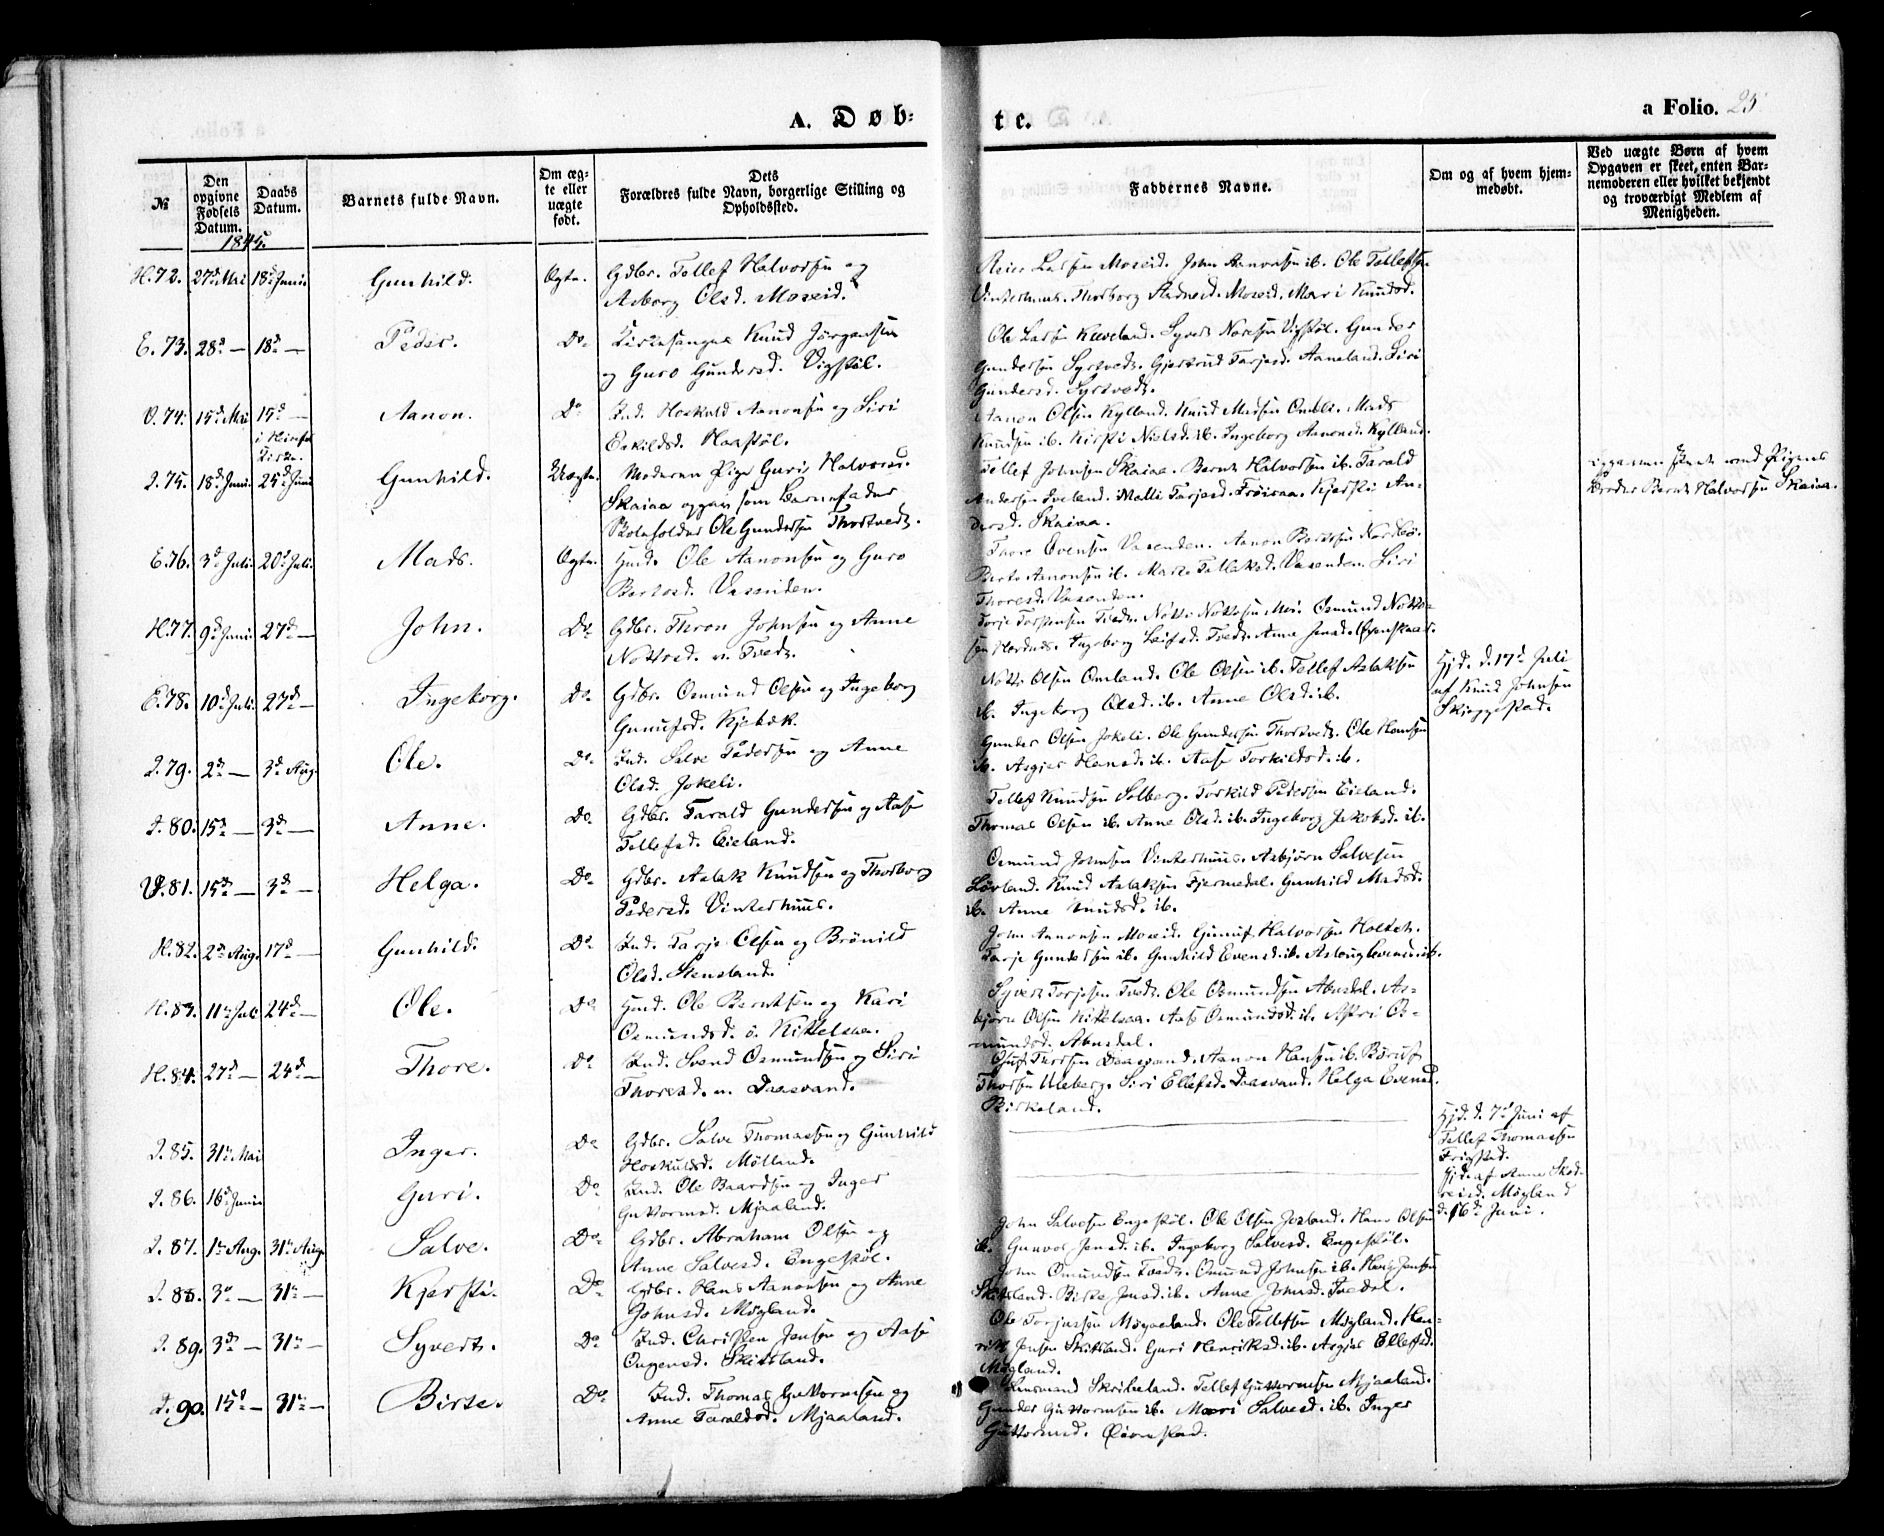 A. Døb-
te.
a Folio. 25
№
Den opgivne Fødsels Datum.
Daabs Datum.
Barnets fulde Navn.
Om ægte eller uægte født.
Dets Forældres fulde Navn, borgerlige Stilling og Opholdssted.
Faddernes Navne.
Om og af hvem hjemmedøbt.
Ved uægte Børn af hvem
Opgaven er skeet, enten Bar-
nemoderen eller hvilket bekjendt
og troværdigt Medlem af
Menigheden.
1845.
H.72. 27d Mai 18d Juni Gunhild. Ægte. Gdbr. Tellef Halvorsen og
Asborg Olsd. Moseid.
Reier Larsen Moseid. John Aanonsen ib. Ole Tellefsen
Vinterhuus. Thorborg Moseid. Mari Knudsd.
E. 73. 28d — 18d — Peder. Do. Kirkesanger Knud Jørgensen
og Guro Gundersd. Vigstøl.
Ole Larsen Kleveland. Syvert Vigstøl. Gunder
Gundersen Syrtvedt. Gjertrud Tarjesd. Aaneland. Siri
Gundersd. Syrtvedt.
V. 74. 15d Mai 15d — Aanon. Do Ind. Hoskuld Aanonsen og Siri
i
Kirke.
Eskildsd. Haastøl.
Aanon Olsen Kylland. Knud Madsen Omlid. Mads
Knudsen ib. Kirsti Nielsd. ib. Ingeborg Aanonsd. Kylland.
I. 75. 18d Juni. 25d Juni Gunhild. Uægte. Moderen Pige Guri Halvorsd.
Skaiaa opgav som Barnefader
Skoleholder Ole Gundersen Thortvedt.
Tellef Johnsen Skaiaa. Bernt Halvorsen ib. Tarald
Andersen Iveland. Malli Tarjesd. Frøisaa. Kjersti An-
dersd. Skaiaa.
Opgaven skeet ved Pigens
Broder Bernt Halvorsen Skaiaa.
E.76. 3d Juli. 20d Juli. Mads. Ægte. Huusm. Ole Aanonsen og Guro
Berthod. Vasenden.
Thore Evensen Vasenden. Aanon Nordbø.
Berte Aanonsen ib. Mari Tellefsd. Vasenden. Siri
Thoresd. Vasenden.
H.77. 9d Juni 27d — John. Do Gdbr. Thron Johnsen og Anne
Nottosd. n. Tvedt.
Torje Torjensen Tvedt. Notto Nottosen Moi. Osmund Notto-
sen Ingeborg Leifsd. Tvedt. Anne Jensd.
E.78. 10d Juli. 27d — Ingeborg. Do Gdbr. Osmund Olsen og Ingeborg
Gunufsd. Kjebæk.
Notto Olsen Omland. Ole Olsen ib. Tellef Aslaksen
ib. Ingeborg Olsd. ib. Anne Olsd. ib.
Hjd. d. 17d Juli
af Knud Johnsen
Skjeggestad.
I. 79. 2d — 3d Aug. Ole. Do Ind. Salve Pedersen og Anne
Olsd. Jokeli.
Gunder Olsen Jokeli. Ole Gundersen Thortvedt. Ole Hansen
ib. Asgjer Hansd. ib. Aase Torkildsd. ib.
I. 80. 15d — 3d — Anne. Do Gdbr. Tarald Gundersen og Aase
Tellefsd. Eieland.
Tellef Knudsen Solberg. Torkild Pedersen Eieland.
Thomas Olsen ib. Anne Olsd. ib. Ingeborg Jakobsd. ib.
V.81. 15d — 3d — Helga. Do Gdbr. Aslak Knudsen og Thorborg
Pedersd. Vinterhuus.
Osmund Johnsen Vinterhuus. Asbjørn Salvesen
Løvland. Knud Aslaksen Fjermedal. Gunhild Madsd.
ib. Anne Knudsd. ib.
H.82. 2d Aug. 17d — Gunhild. Do Ind. Tarje Olsen og Brønild
Olsd. Stensland.
John Aanonsen Moseid. Gunuf Halvorsen Holteh.
Tarje Gundersen ib. Gunhild Evensd. ib. Aslaug Evensd. ib.
H.83. 11te Juli 24d — Ole. Do Huusm. Ole Berntsen og Kari
Osmundsd. ø. Kittelsaa.
Syvert Torjesen Tvedt. Ole Osmundsen Abusdal. As-
bjørn Olsen Kittelsaa. Aase Osmundsd. ib. Astri Os-
mundsd. Abusdal.
H.84. 27d — 24d — Thore. Do Ind. Svend Osmundsen og Siri
Thoresd. n. Daasvand.
Thorsen Daasvand. Aanon Hansen ib.
Thorsen Uleberg. Siri Ellefsd. Daasvand. Helga Evensd.
Birkeland.
I. 85. 31te Mai Inger. Do Gdbr. Salve Thomassen og Gunhild
Hoskuldsd. Mølland.
Hjd. d. 7d Juni af
Tellef Thomassen
Frigstad.
I. 86. 16d Juni Guri. Do Ind. Ole Baardsen og Inger
Guttormsd. Mjaaland.
Hjd. af Anne
Møgland
d. 16d Juni.
I. 87. 1te Aug. 31te Aug. Salve. Do. Gdbr. Abraham Olsen og
Anne Salvesd. Engestøl.
John Salvesen Engestøl. Ole Olsen Hans Olsen
ib. Gunvor Jensd. ib. Ingeborg Salvesd. Engestøl.
I. 88. 3d — 31te — Kjersti. Do Gdbr. Hans Aanonsen og Anne
Johnsd. Møgland.
John Osmundsen Tvedt. Osmund Johnsen ib. Hans Jensen
Skitsland. Birte Jensd. ib. Anne Johnsd.
I. 89. 3d — 31te — Syvert. Do Ind. Christen Jensen og Aase
Skitsland.
Ole Torjussen Møgland. Ole Tellefsen Møgland. Hen-
rik Jensen Skitsland. Guri Henriksd. ib. Asgjer Ellefsd.
Møgland.
I. 90. 15d — 31te — Birte. Do Ind. Thomas Guttormsen og
Anne Taraldsd. Mjaaland.
Lensmand Skribeland. Tellef Guttormsen Mjaaland.
Gunder Guttormsen ib. Mari Salvesd. ib. Inger
Guttormsd.